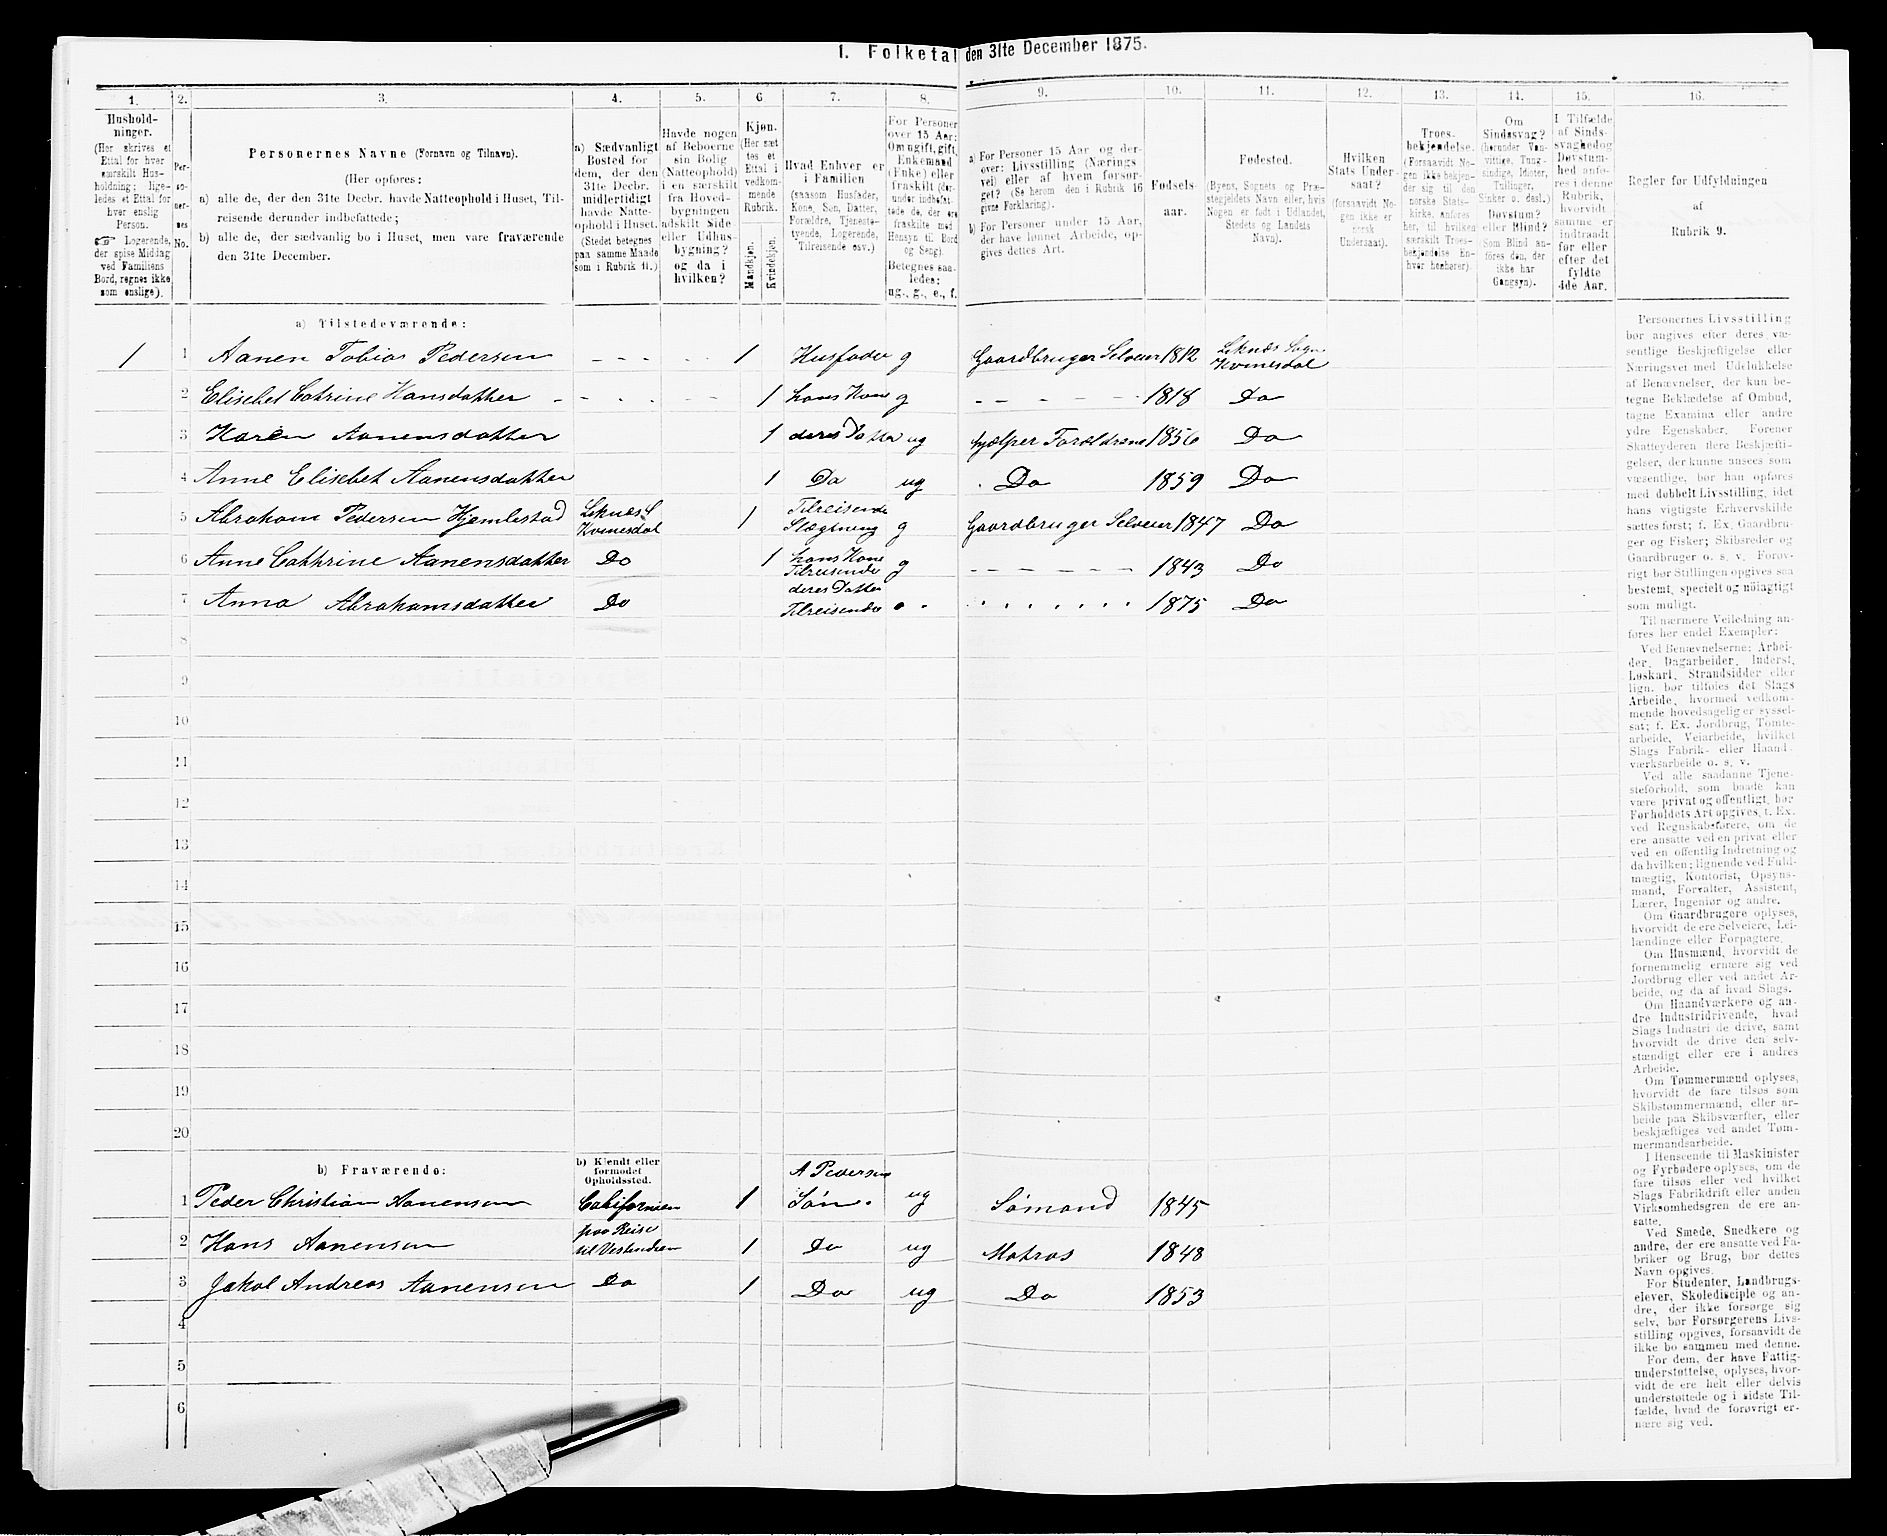 1. Folketal den 31te December 1875.
1. 2. 3. 4. 5. 6 7. 8. 9. 10. 11. 12. 13. 14. 15. 16.
Hushold-
ninger.
(Her skrives et
Ettal for hver
særskilt Hus-
holdning; lige-
ledes et Ettal for
hver enslig
Person.
☞ Logerende,
der spise Middag
ved Familiens
Bord, regnes ikke
som enslige).
Per-
so-
ner-
nes
No.
Personernes Navne (Fornavn og Tilnavn).
(Her opføres:
a) alle de, der den 31te Decbr. havde Natteophold i Huset, Til-
reisende derunder indbefattede;
b) alle de, der sædvanlig bo i Huset, men vare fraværende
den 31te December.
a) Sædvanligt
Bosted for
dem, der den
31te Decbr.
midlertidigt
havde Natte-
ophold i Huset.
(Stedet betegnes
paa samme Maade
som i Rubrik 11.)
Havde nogen
af Beboerne
sin Bolig
(Natteophold)
i en særskilt
fra Hoved-
bygningen
adskilt Side-
eller Udhus-
bygning?
og da i
hvilken?
Kjøn.
(Her sæt-
tes et
Ettal i
vedkom-
mende
Rubrik.
Mandkjøn.
Kvindekjøn.
Hvad Enhver er
i Familien
(saasom Husfader,
Kone, Søn, Datter,
Forældre, Tjeneste-
tyende, Logerende,
Tilreisende osv.)
For Personer
over 15 Aar:
Om ugift, gift,
Enkemand
(Enke) eller
fraskilt (der-
under indbefat-
tede de, der ere
fraskilte med
Hensyn til Bord
og Seng).
Betegnes saa-
ledes:
ug., g., e., f.
a) For Personer 15 Aar og der-
over: Livsstilling (Nærings-
vei) eller af hvem forsør-
get? (Se herom den i Rubrik 16
givne Forklaring).
b) For Personer under 15 Aar,
der have lønnet Arbeide, op-
gives dettes Art.
Fødsels-
aar.
Fødested.
(Byens, Sognets og Præ-
stegjeldets Navn eller, hvis
Nogen er født i Udlandet,
Stedets og Landets
Navn).
Hvilken
Stats Under-
saat?
(forsaavidt No-
gen ikke er
norsk
Undersaat).
Troes-
bekjendelse.
(Forsaavidt No-
gen ikke bekjen-
der sig til den
norske Stats-
kirke, anføres
her, til hvilken
særskilt Troes-
bekjendelse En-
hver henhører).
Om
Sindssvag?
(herunder Van-
vittige, Tung-
sindige, Idioter,
Tullinger,
Sinker o. desl.)
Døvstum?
eller Blind?
Som Blind an-
føres den, der
ikke har
Gangsyn).
I Tilfælde
af Sinds-
svaghed og
Døvstum-
hed anfø-
res i denne
Rubrik,
hvorvidt
samme er
indtraadt
før eller
efter det
fyldte
4de Aar.
Regler for Udfyldningen
af
Rubrik 9.
a) Tilstedeværende:
1 1 Aanen Tobias Pedersen 1 Husfader g Gaardbruger Selveier 1812 Leknæs Sogn Kvinesdal
2 Elisebet Cathrine Hansdatter 1 hans Kone g 1818 Do
3 Karen Aanensdatter 1 deres Datter ug hjælper Forældrene 1856 Do
4 Anne Elisebet Aanensdatter 1 Do ug Do 1859 Do
5 Abraham Pedersen Hjemlestad Leknæs S. Kvinesdal 1 Tilreisende Slægtning g Gaardbruger Selveier 1847 Do
6 Anne Cathrine Aanensdatter Do 1 hans Kone Tilreisende g 1843 Do
7 Anna Abrahamsdatter Do deres Datter Tilreisende 1875 Do
8
9
10
11
12
13
14
15
16
17
18
19
20
b) Fraværende:
b) Kjendt eller
formodet
Opholdssted.
1 Peder Christian Aanensen Californien 1 A Pedersen Søn. ug Sømand 1845
2 Hans Aanensen paa Reise til Vestindien 1 Do ug Matros 1848
3 Jakob Andreas Aanensen Do 1 Do ug Do 1853
4
5
6
Personernes Livsstilling
bør angives efter deres væ-
sentlige Beskjæftigelse eller
Næringsvei med Udelukkelse
af Benævnelser, der kun be-
tegne Beklædelse af Ombud,
tagne Examina eller andre
ydre Egenskaber. Forener
Skatteyderen flere Beskjæfti-
gelser, der kunne ansees som
væsentlige, bør han opføres
med dobbelt Livsstilling, idet
hans vigtigste Erhvervskilde
sættes først; f. Ex. Gaardbru-
ger og Fisker; Skibsreder og
Gaardbruger o. s. v. Forøv-
rigt bør Stillingen opgives saa
bestemt, specielt og nøiagtigt
som muligt.
Til nærmere Veiledning an-
føres her endel Exempler:
Ved Benævnelserne: Arbei-
der, Dagarbeider, Inderst,
Løskarl, Strandsidder eller
lign. bør tilføies det Slags
Arbeide, hvormed vedkom-
mende hovedsagelig er syssel-
sat; f. Ex. Jordbrug, Tomte-
arbeide, Veiarbeide, hvilket
Slags Fabrik- eller Haand-
værksarbeide o. s. v.
Ved alle saadanne Tjene-
steforhold, som baade kan
være privat og offentligt, bør
Forholdets Art opgives, f. Ex.
ved Regnskabsførere, om de
ere ansatte ved en privat eller
ved en offentlig Indretning og
da hvilken; lignende ved Fuld-
mægtig, Kontorist, Opsyns-
mand, Forvalter, Assistent,
Lærer, Ingeniør og andre.
Om Gaardbrugere oplyses,
hvorvidt de ere Selveiere, Lei-
lændinge eller Forpagtere.
Om Husmænd, hvorvidt de
fornemmelig ernære sig ved
Jordbrug eller ved andet Ar-
beide, og da af hvad Slags.
Om Haandværkere og an-
dre Industridrivende, hvad
Slags Industri de drive, samt
hvorvidt de drive den selv-
stændigt eller ere i andres
Arbeide.
Om Tømmermænd oplyses,
hvorvidt de fare tilsøs som
Skibstømmermænd, eller ar-
beide paa Skibsværfter, eller
beskjæftiges ved andet Tøm-
mermandsarbeide.
I Henseende til Maskinister
og Fyrbødere oplyses, om de
fare tilsøs eller ved hvilket
Slags Fabrikdrift eller anden
Virksomhedsgren de ere an-
satte.
Ved Smede, Snedkere og
andre, der ere ansatte ved Fa-
briker og Brug, bør dettes
Navn opgives.
For Studenter, Landbrugs-
elever, Skoledisciple og an-
dre, der ikke forsørge sig
selv, bør Forsørgerens Livs-
stilling opgives, forsaavidt de
ikke bo sammen med denne.
For dem, der have Fattig-
understøttelse, oplyses, hvor-
vidt de ere helt eller delvis
understøttede og i sidste Til-
fælde, hvad de forøvrigt er-
nære sig ved.